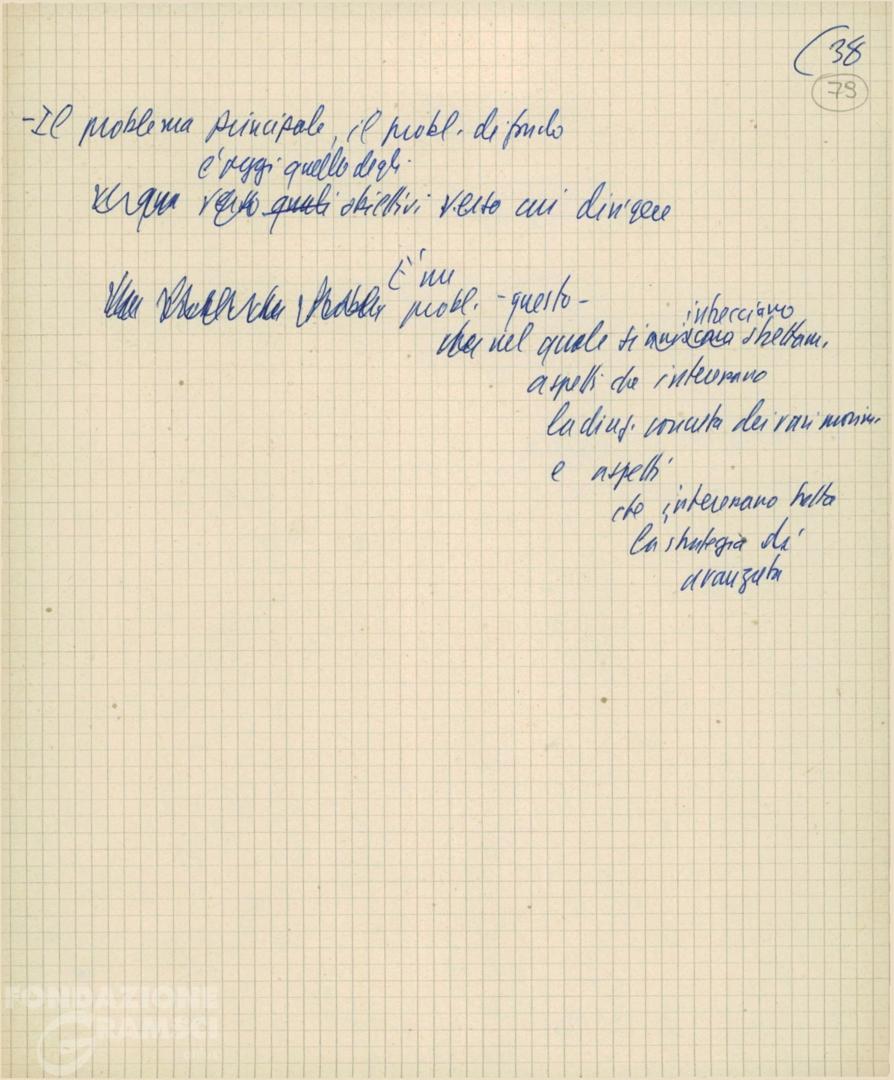 (38
79
-Il problema principale, il probl. di fondo
è oggi quello degli
verso obiettivi verso cui dirigere
È un
probl. -questo-
intrecciano
nel quale si strettam.
aspetti che interessano
la direz. concreta dei vari movim.
e aspetti
che interessano tutta
la strategia di
avanzata
FONDAZIONE
GRAMSCI